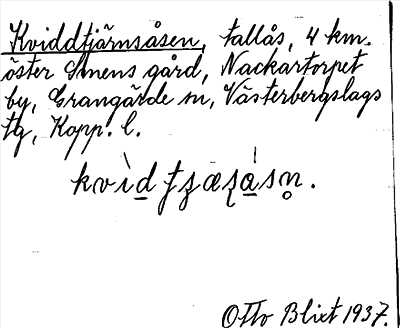 Kviddtjärnsåsen, tallås, 4 km.
öster Smens gård, Nackartorpet
by, Grangärde sn, Västerbergslags
tg, Kopp. l.
Otto Blixt 1937.